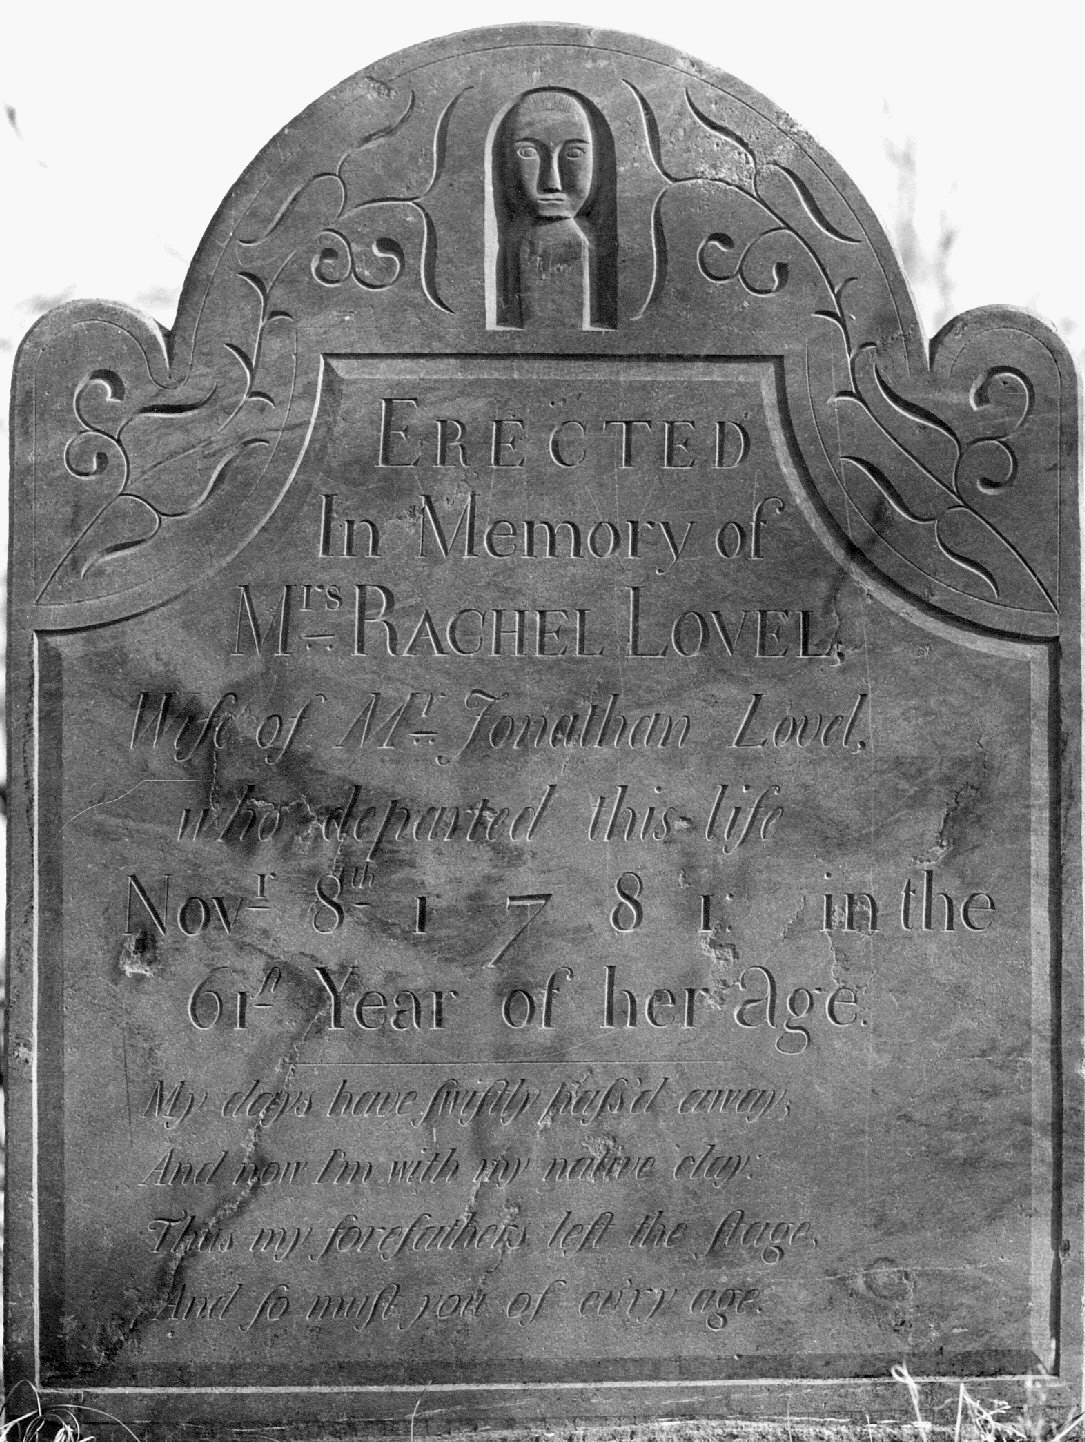 ERECTED
In Memory of
Mrs RACHEL LOVEL,
Wife of Mr Jonathan Lovel,
who departed this life
Novr 8th 1781: in the
61st Year of her age.
My days have ſwiftly paſs'd away,
And now I'm with my native clay:
Thus my forefathers left the ſtage,
And ſo muſt you of ev'ry age.